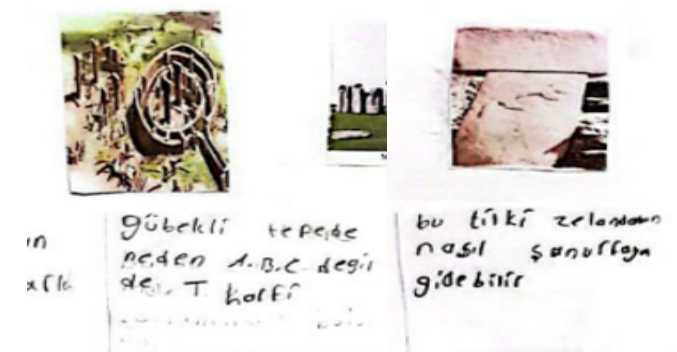 gübekli tepede
neden A.B.C. degil
de. T harfi
bu tilki zelandadan
nasıl şanurfaya
gidebilir